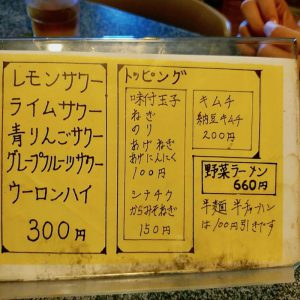 レモンサワー
ライムサワー
青りんごサワー
グレープフルーツサワー
ウーロンハイ
300円
トッピング
味付玉子
ねぎ
のり
あげねぎ
あげにんにく
100円
シナチク
からみそねぎ
150円
キムチ
納豆キムチ
200円
野菜ラーメン
660円
半麺 半チャーハン
は100円引きです